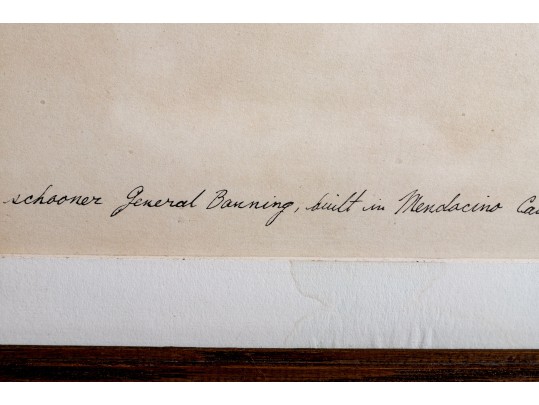 schooner General Banning, built in Mendocino Ca